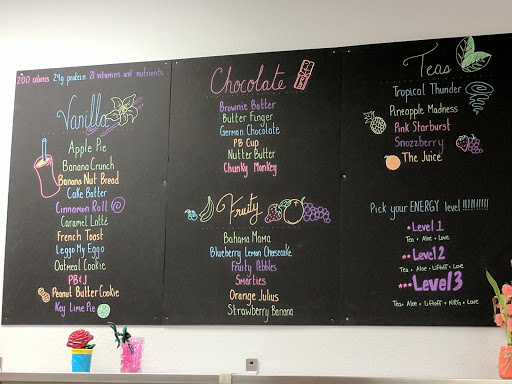 200 calories 24g protein 21 vitamins and nutrients
Vanilla
Apple Pie
Banana Crunch
Banana Nut Bread
Cake Batter
Cinnamon Roll
Caramel Latté
French Toast
Leggo My Eggo
Oatmeal Cookie
PB&J
Peanut Butter Cookie
Key Lime Pie
Chocolate
Brownie Batter
Butter Finger
German Chocolate
PB Cup
Nutter Butter
Chunky Monkey
Fruity
Bahama Mama
Blueberry Lemon Cheesecake
Fruity Pebbles
Smarties
Orange Julius
Strawberry Banana
Teas
Tropical Thunder
Pineapple Madness
Pink Starburst
Snozzberry
The Juice
Pick your ENERGY level !!!!!!!!!!
*Level 1
Tea + Aloe + Love
**Level 2
Tea + Aloe + Liftoff + Love
***Level 3
Tea + Aloe + Liftoff + NRG + Love